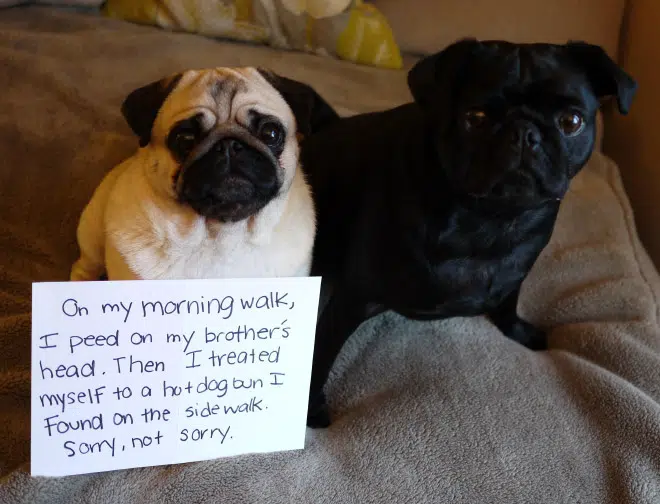 On my morning walk,
I peed on my brother's
head. Then I treated
myself to a hotdog bun I
Found on the sidewalk.
Sorry, not sorry.